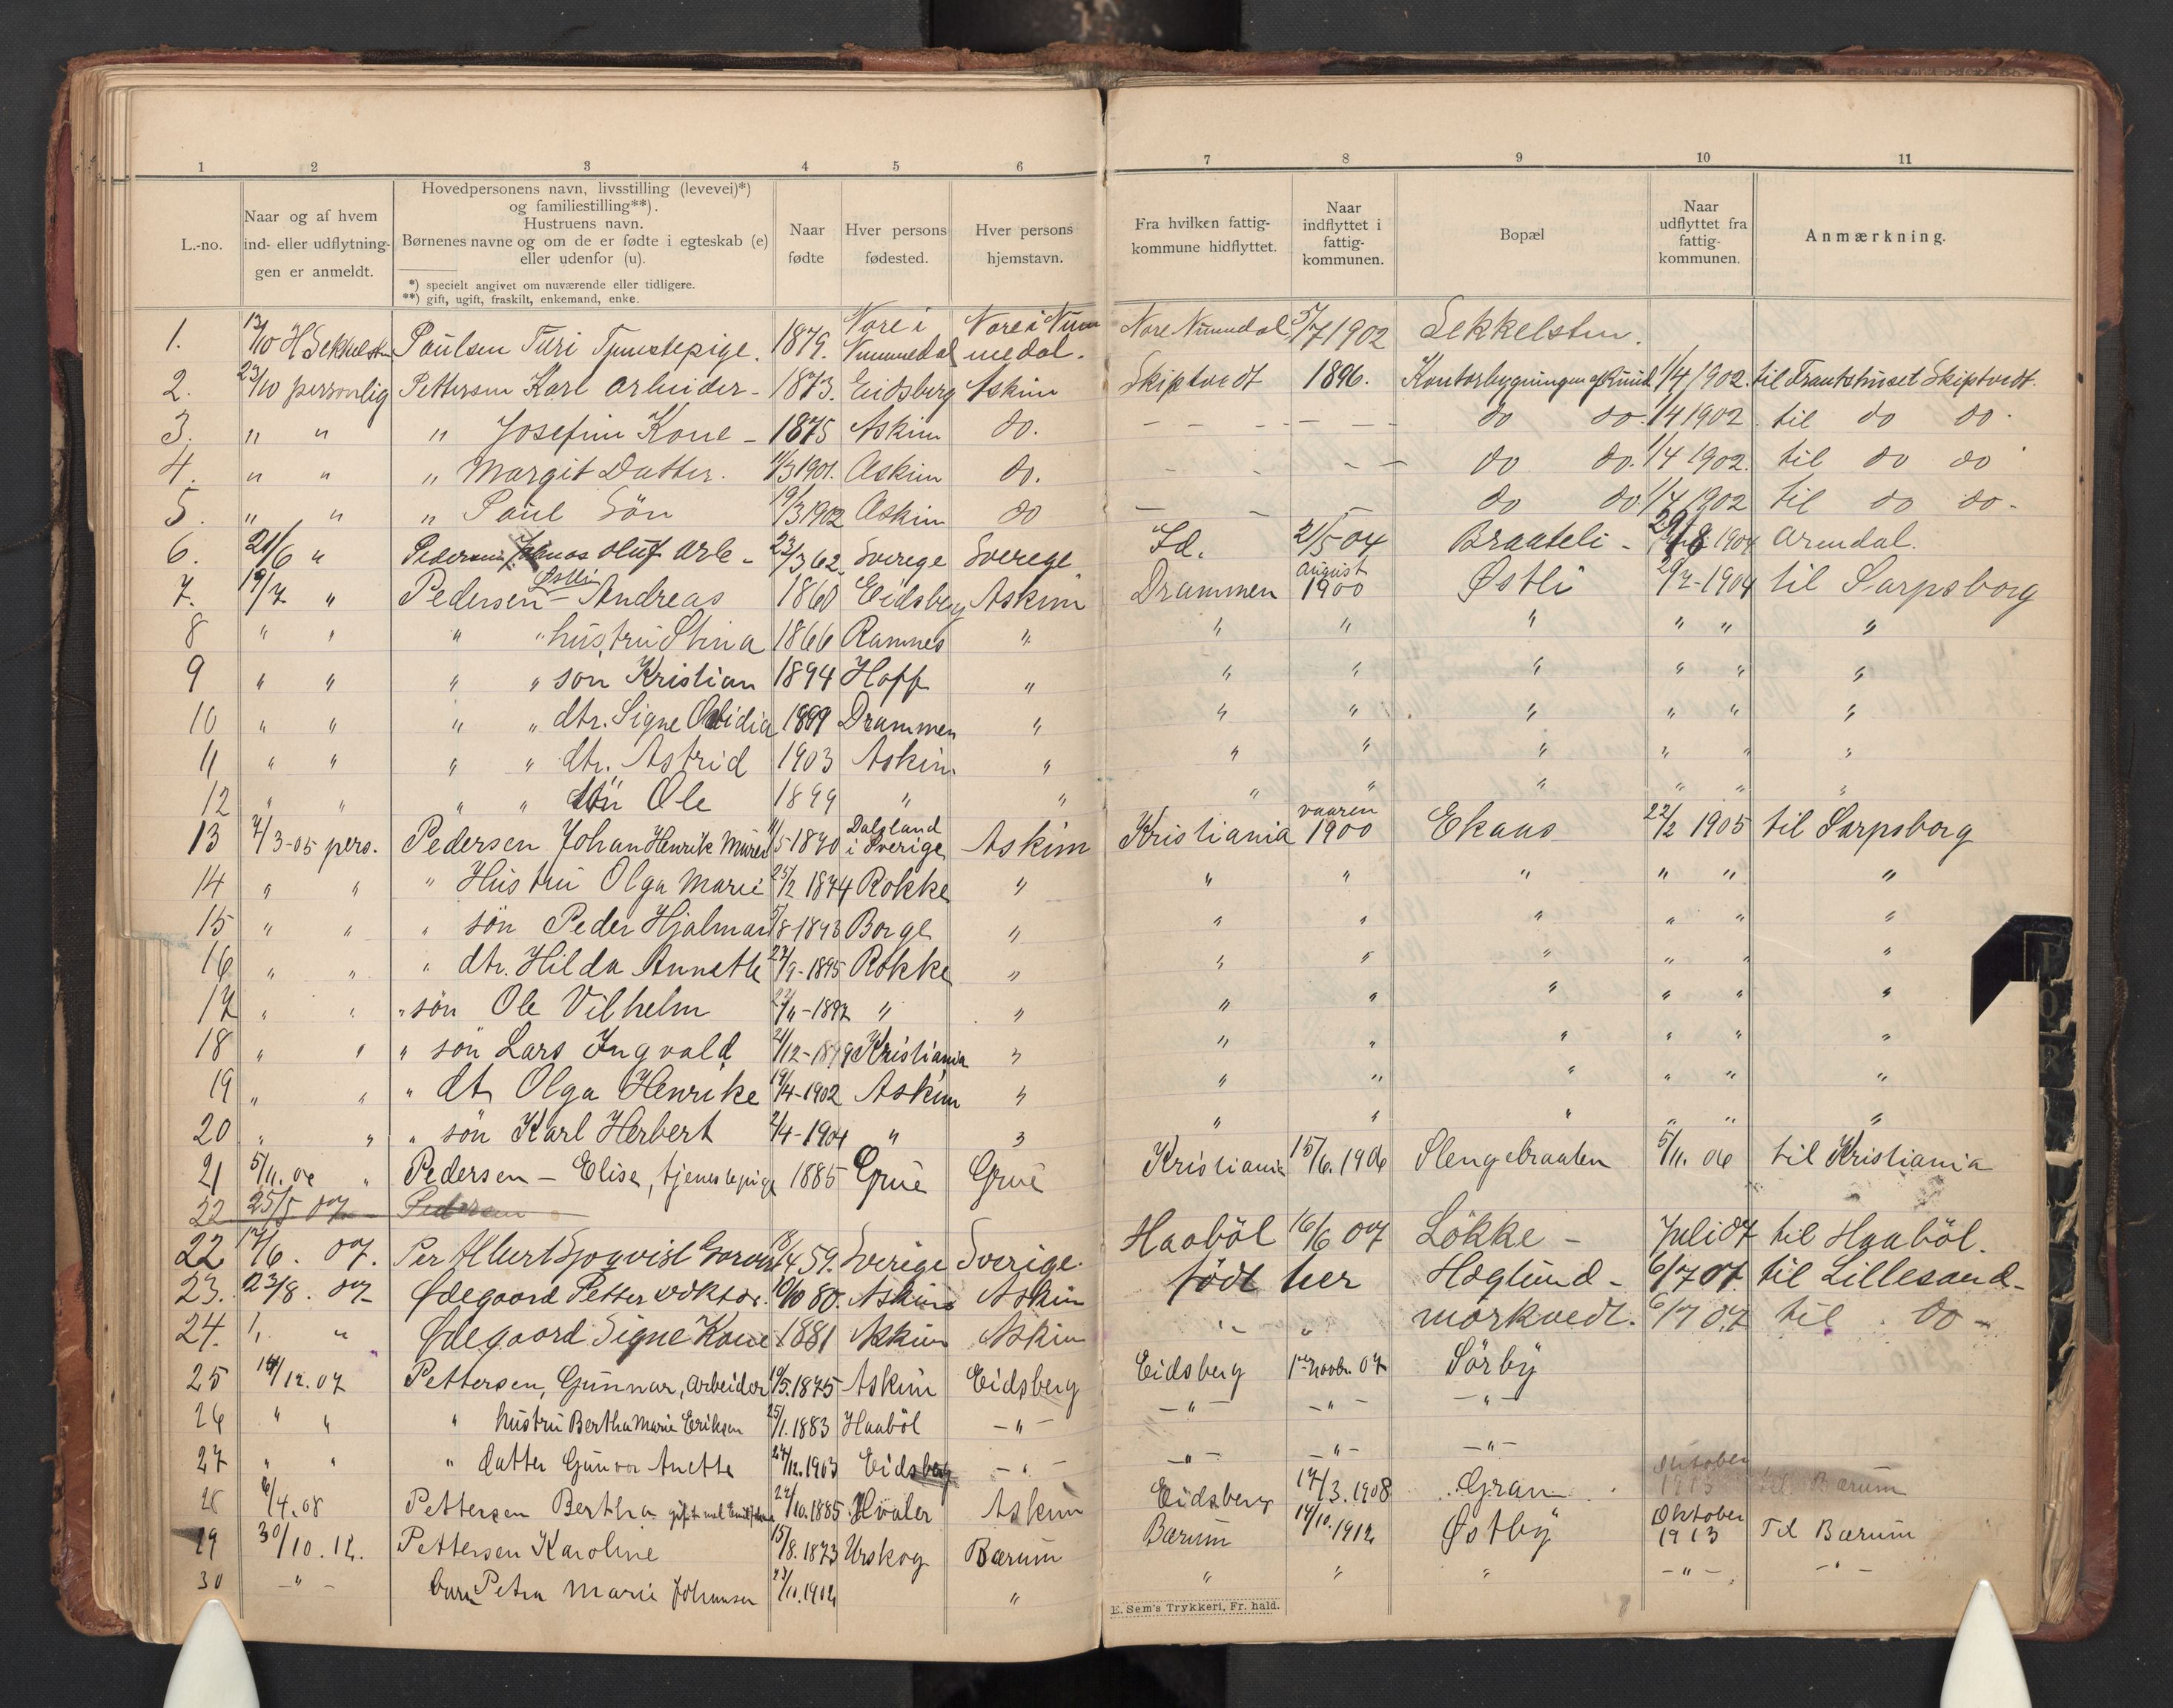 1 2 3 4 5 6 7 8 9 10 11
L.-no.
Naar og af hvem
ind- eller udflytnin-
gen er anmeldt.
Hovedpersonens navn, livsstilling (levevei)*)
og familiestilling**).
Hustruens navn.
Børnenes navne og om de er fødte i egteskab (e)
eller udenfor (u).
*) specielt angivet om nuværende eller tidligere.
**) gift, ugift, fraskilt, enkemand, enke.
Naar
fødte
Hver persons
fødested.
Hver persons
hjemstavn.
Fra hvilken fattig-
kommune hidflyttet.
Naar
indflyttet i
fattig-
kommunen.
Bopæl
Naar
udflyttet fra
fattig-
kommunen.
Anmærkning.
1. 13/10 H Sekkelsten Paulsen Turi Tjenestepige. 1879. Nore i Nummedal Nore i Nummedal. Nore Numedal 5/7 1902 Sekkelsten.
2. 23/10 personlig Pettersen Karl Arbeider - 1873. Eidsberg Askim Skiptvedt 1896. Kontorbygningen 1/4 1902. til Skiptvedt.
3. " " " Josefine Kone - 1875 Askim do. - - - - - - do do. 1/4 1902. til do do.
4. " " " Margit Datter. 11/3 1901. Askim do. - - - - do do. 1/4 1902. til do do
5. " " " Paul Sön 19/3 1902 Askim do - - - do do 1/4 1902 til do do -
6. 21/6 " Pedersen Oluf Arb - 23/3 62. Sverege Sverege Id. 21/5 04 Braateli - 29/8 1904 Arendal.
7. 19/7 " Pedersen Østli - Andreas 1860 Eidsberg Askim Drammen august 1900 Østli 29/7 - 1904 til Sarpsborg
8 " " " " hustru Stina 1866 Ramnes " " " " " " "
9 " " " " sön Kristian 1894 Hoff " " " " " " "
10 " " " " dtr. Signe 1899 Drammen " " " " " " "
11 " " " " dtr. Astrid 1903 Askim " " " " " " "
12 " " " " sön Ole 1899 " " " " " " " "
13 7/3-05 pers. Pedersen Johan Henrik Murer 11/5-1870 Dalsland i Sverige Askim Kristiania vaaren 1900 Ekaas 22/2 1905 til Sarpsborg
14 " " " Hustru Olga Marie 25/2 1874 Rokke " " " " " " "
15 " " " sön Peder Hjalmar 5/8-1893 Borge " " " " " " "
16 " " " dtr. Hilda Annette 27/9-1895 Rokke " " " " " " "
17 " " " sön Ole Vilhelm 22/11-1897 " " " " " " " "
18 " " " sön Lars Ingvald 21/12-1899 Kristiania " " " " " " "
19 " " " dt. Olga Henrike 19/4-1902 Askim " " " " " " "
20 " " " sön Karl Herbert 2/4-1904 " " " " " " " "
21 5/11.06 " Pedersen - Elise, tjenestepige 1885 Grue Grue Kristiania 15/6.1906 Slengebraaten 5/11.06 til Kristiania
22 25/5 07 Pedersen
22 17/6. 07. Per Albert Sjoqvist 18/4 59. Sverige Sverige. Haaböl 16/6 07 Lökke - Juli 07 til Haaböl.
23. 23/8. 07 Ødegaard Petter doktor. 10/10 80. Askim Askim födt her Höglund - 6/7 07 til Lillesand -
24. " " Ødegaard Signe Kone 1881 Askim Askim " " morkvedt. 6/7 07 til do -
25 14/12.07 Pettersen, Gunnar, arbeider 10/5.1875 Askim Eidsberg Eidsberg 1ste Novbr. 07 Sörby
26 " " " hustru Bertha Marie Eriksen 25/1.1883 Haaböl - " - - " - - " - - " -
27 " " " datter Gunvor Anette 27/12.1903 Eidsberg - " - - " - - " - - " -
28 6/4.08 Pettersen Bertha gift med 22/10.1885 Hvaler Askim Eidsberg 17/3.1908 Gran oktober 1913 til Bærum
29 30/10.12. Pettersen Karoline 15/8.1873 Urskog Bærum Bærum 14/10.1912 Østby Oktober 1913 Til Bærum
30 - " - barn Petra Marie Johansen 23/11.1902 " " " " - " - - " -
E. Sem's Trykkeri, Fr. hald.